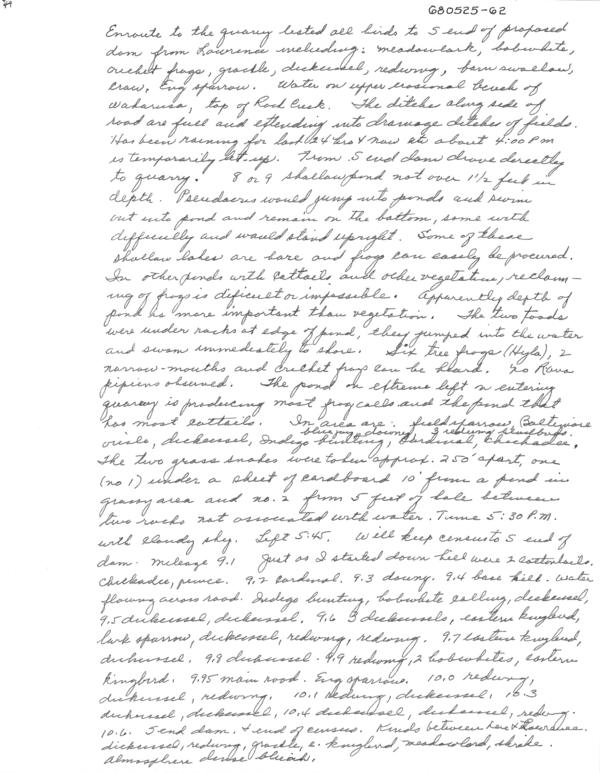 G80525-62
Enroute to the quarry listed all birds to S end of proposed
dam from Lawrence including: meadowlark, bobwhite,
cricket frogs, grackle, dickcissel, redwing, barn swallow,
crow, Eng sparrow. Water on upper erosional bench of
Wakarusa, top of Rock Creek. The ditches along side of
road are full and extending into drainage ditches of fields.
Has been raining for last 24 hrs & now at about 4:00 P.M
is temporarily let-up. From S end dam drove directly
to quarry. 8 or 9 shallow pond not over 1½ feet in
depth. Pseudacris would jump into ponds and swim
out into pond and remain on the bottom, some with
difficulty and would stand upright. Some of these
shallow lakes are bare and frogs can easily be procured.
In other ponds with cattails and other vegetation, reclaim-
ing of frogs is dificult or impossible. Apparently depth of
pond as more important than vegetation. The two toads
were under rocks at edge of pond, they jumped into the water
and swam immediately to shore. Six tree frogs (Hyla), 2
narrow-mouths and cricket frogs can be heard. 20 Rana
pipiens observed. The pond on extreme left n entering
quarry is producing most frog calls and the pond that
has most cattails. In area are: field sparrow, Baltimore
bluejay, downy, 3 redwing,
oriole, dickcissel, Indigo bunting, Cardinal, chickadee.
The two grass snakes were taken approx. 250' apart, one
(no 1) under a sheet of cardboard 10' from a pond in
grassy area and no. 2 from 5 feet of hole between
two rocks not associated with water. Time 5:30 P.M.
with cloudy sky. Left 5:45. Will keep census to S end of
dam. Mileage 9.1 Just as I started down hill were 2 cottontails.
Chickadee, pewee. 9.2 cardinal. 9.3 downy. 9.4 base hill. Water
flowing across road. Indigo bunting, bobwhite calling, dickcissel,
9.5 dickcissel, dickcissel. 9.6 3 dickcissels, eastern kingbird,
lark sparrow, dickcissel, redwing, redwing. 9.7 eastern kingbird,
dickcissel. 9.8 dickcissel. 9.9 redwing, 2 bobwhites, eastern
kingbird. 9.95 main road. Eng sparrow. 10.0 redwing,
dickcissel, redwing. 10.1 redwing, dickcissel, 10.3
dickcissel, dickcissel, 10.4 dickcissel, dickcissel, redwing.
10.6. S end dam. & end of census. Kinds between here & Lawrence.
dickcissel, redwing, grackle, e. kingbird, meadowlark, shrike.
Atmosphere dense bluish.